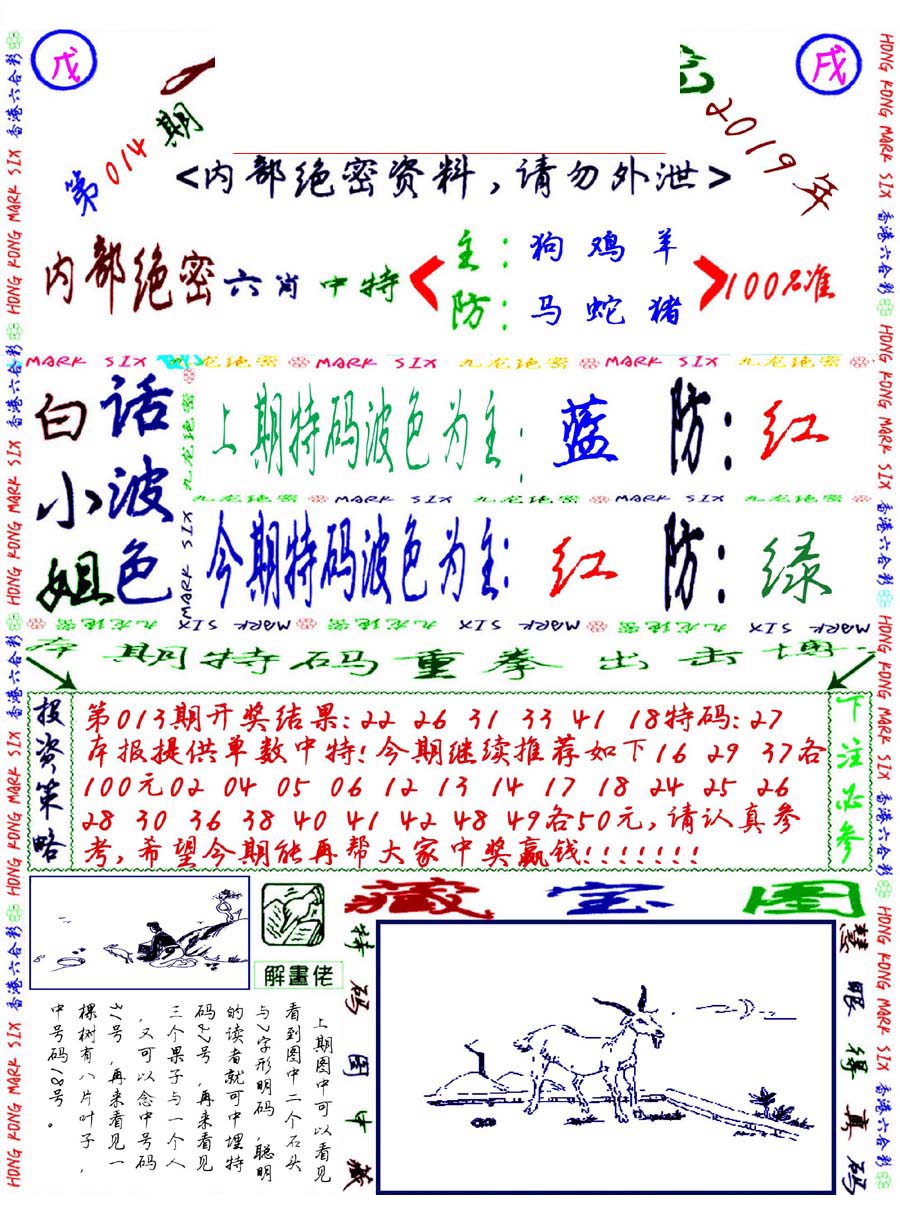 戊
戌
第014期
2019年
<内部绝密资料,请勿外泄>
内部绝密六肖中特
主:狗鸡羊
防:马蛇猪
100%准
MARK SIX 九龙绝密 MARK SIX 九龙绝密 MARK SIX 九龙绝密
白话小波姐色
上期特码波色为主:蓝 防:红
九龙绝密 MARK SIX 九龙绝密 MARK SIX 九龙绝密
今期特码波色为主:红 防:绿
九龙绝密 MARK SIX
MARK SIX 九龙绝密 MARK SIX 九龙绝密 MARK SIX 九龙绝密
期特码重拳出击
投资策略
第013期开奖结果:22 26 31 33 41 18特码:27
本报提供单数中特!今期继续推荐如下16 29 37各
100元02 04 05 06 12 13 14 17 18 24 25 26
28 30 36 38 40 41 42 48 49各50元,请认真参
考,希望今期能再帮大家中奖赢钱!!!!!!!
下注必参
解畫佬
藏宝图
上期图中可以看见
看到图中二个石头
与7字形明码,聪明
的读者就可中埋特
码27号,再来看见
三个果子与一个人
,又可以念中号码
31号,再来看见一
棵树有八片叶子,
中号码18号。
特码图中藏
慧眼得真码
HONG KONG MARK SIX 香港六合彩 HONG KONG MARK SIX 香港六合彩 HONG KONG MARK SIX 香港六合彩 HONG KONG MARK SIX 香港六合彩
HONG KONG MARK SIX 香港六合彩 HONG KONG MARK SIX 香港六合彩 HONG KONG MARK SIX 香港六合彩 HONG KONG MARK SIX 香港六合彩